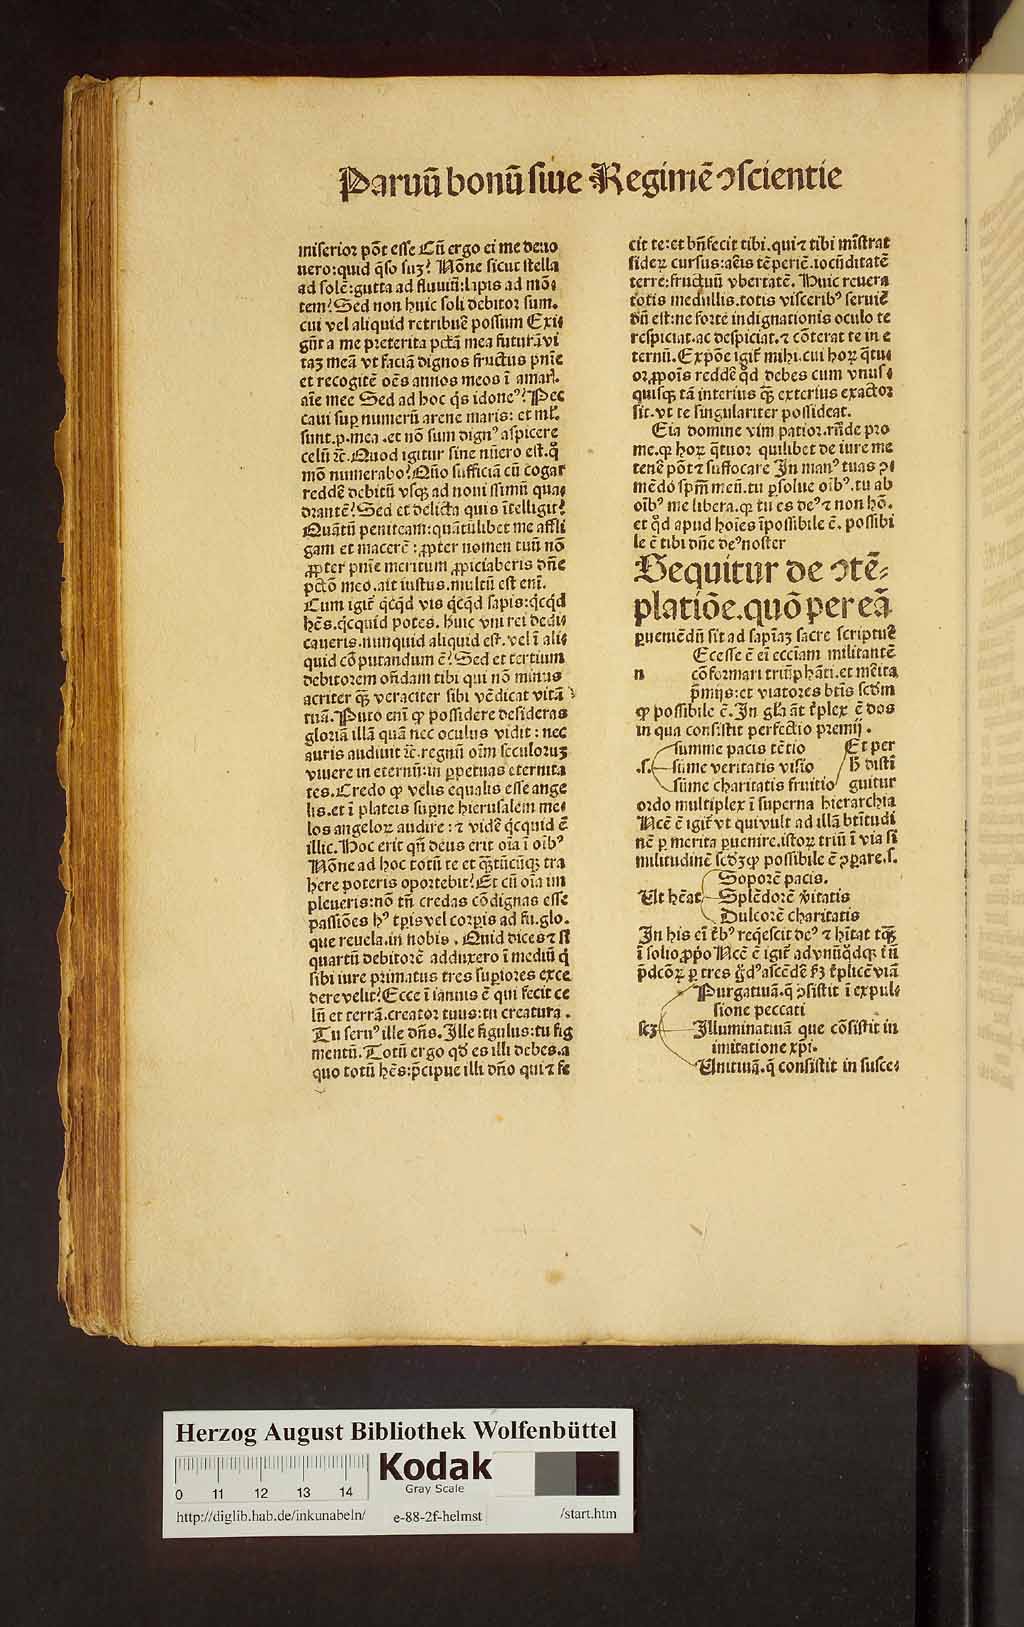 Paruū bonū siue Regimē ↄscientie
miserior pōt esse Cū ergo ei me deuo
uero:quid q̄so suꝫ? Nōne sicut stella
ad solē:gutta ad fluuiū:lapis ad mō⸗
tem? Sed non huic soli debitor sum.
cui vel aliquid retribuē possum Exi⸗
gūt a me preterita pctā mea futurā vi
taꝫ meā vt faciā dignos fructus pnīe
et recogitē oēs annos meos ī amari.
aīe mee Sed ad hoc q̄s idoneꝰ? Pec
caui suꝑ numerū arene maris: et ml̄.
sunt.p.mea .et nō sum dignꝰ aspicere
celū ⁊c̄. Quod igitur sine nūero est.qͦ
mō numerabo? Qūo sufficiā cū cogar
reddē debitū vsqꝫ ad noui ssimū qua⸗
drantē? Sed et delicta quis ītelligit?
Quātū peniteam:quātūlibet me affli
gam et macerē : ꝓpter nomen tuū nō
ꝓpter pnīe meritum ꝓpiciaberis dn̄e
pctō meo.ait iustus.multū est enī.
Cum igit̄ qͥcqͥd vis qͥcqͥd sapis:qͥcqͥd
hēs.qͥcquid potes. huic vni rei dedi⸗
caueris.nunquid aliquid est.vel ī ali⸗
quid cōputandum ē? Sed et tertium
debitorem on̄dam tibi qui nō minus
acriter qꝫ̄ veraciter sibi vēdicat vitā
tuā. Puto enī ꝙ possidere desideras
gloriā illā quā nec oculus vidit : nec
auris audiuit ⁊c̄.regnū oīm seculoruꝫ
viuere in eternū:in ꝑpetuas eternita
tes. Credo ꝙ velis equalis esse ange
lis.et ī plateis suꝑne hierusalem me⸗
los angeloꝝ audire : ⁊ vidē qͥcquid ē
illic. Hoc erit qn̄ deus erit oīa ī oībꝰ
Nōne ad hoc totū te et qꝫ̄tūcūqꝫ tra
here poteris oportebit? Et cū oīa im
pleueris:nō tn̄ credas cōdignas esse
passiōes hꝰ tp̄is vel corꝑis ad fu.glo.
que reuela.in nobis . Quid dices ⁊ si
quartū debitorē adduxero ī mediū qͥ
sibi iure primatus tres suꝑiores exce
dere velit? Ecce ī ianuis ē qui fecit ce
lū et terrā.creator tuus:tu creatura .
Tu seruꝰ ille dn̄s. Ille figulus:tu fig
mentū. Totū ergo qd̄ es illi debes.a
quo totū hēs:p̄cipue illi dn̄o qui ⁊ fe
cit te:et bn̄fecit tibi.qui ⁊ tibi mīstrat
sideꝝ cursus:aēis tēperiē.iocūditatē
terre:fructuū vbertatē. Huic reuera
totis medullis.totis visceribꝰ seruiē
dū est:ne forte indignationis oculo te
respiciat.ac despiciat.⁊ cōterat te in e
ternū. Expōe igit̄ mihi.cui hoꝝ qͣtu⸗
or.ꝓpoīs reddē qd̄ debes cum vnus⸗
quisqꝫ tā interius qꝫ̄ exterius exactor
sit.vt te singulariter possideat.
Eia domine vim patior.rn̄de pro
me.ꝙ hoꝝ qͣtuor quilibet de iure me
tenē pōt ⁊ suffocare In manꝰ tuas ↄ⸗
mēdo spm̄ meū.tu ꝑsolue oībꝰ.tu ab
oībꝰ me libera.ꝙ tu es deꝰ ⁊ non hō.
et qd̄ apud hoīes īpossibile ē. possibi
le ē tibi dn̄e deꝰ noster
Sequitur de ↄtē⸗
platiōe.quō per eā
ꝑueniēdū sit ad sapīaꝫ sacre scriptuꝛ̄
Ecesse ē eī ecciam militantē
n cōformari triūphāti.et mēita
p̄mijs:et viatores btīs scd̄m
ꝙ possibile ē. In gl̄ia āt tͥplex ē dos
in qua consistit perfectio premij .
summe pacis tētio Et per
.s. sūme veritatis visio h̄ distī
sūme charitatis fruitio guitur
ordo multiplex ī superna hierarchia
Ncē ē igit̄ vt qui vult ad illā btītudi
nē ꝑ merita ꝑuenire.istoꝝ triū ī via si
militudinē scdꝫ ꝙ possibile ē ↄꝑare.s.
Soporē pacis.
Ut hēat Splēdorē v̄itatis
Dulcorē charitatis
In his eī tͥbꝰ reqͥescit deꝰ ⁊ hītat tqꝫ̄
ī solio ꝓpͥo Ncē ē igit̄ ad vnūqd̄qꝫ tͥū
p̄dcōꝝ ꝑ tres gͣdꝰ ascēdē fꝫ tͥplicē viā
Purgatiuā.q̄ ↄsistit ī expul⸗
sione peccati
scꝫ Illuminatiuā que cōsistit in
imitatione xp̄i.
Unitiuā.q̄ consistit in susce⸗
Herzog August Bibliothek Wolfenbüttel
Kodak
Gray Scale
0 11 12 13 14
http://diglib.hab.de/inkunabeln/ e-88-2f-helmst /start.htm